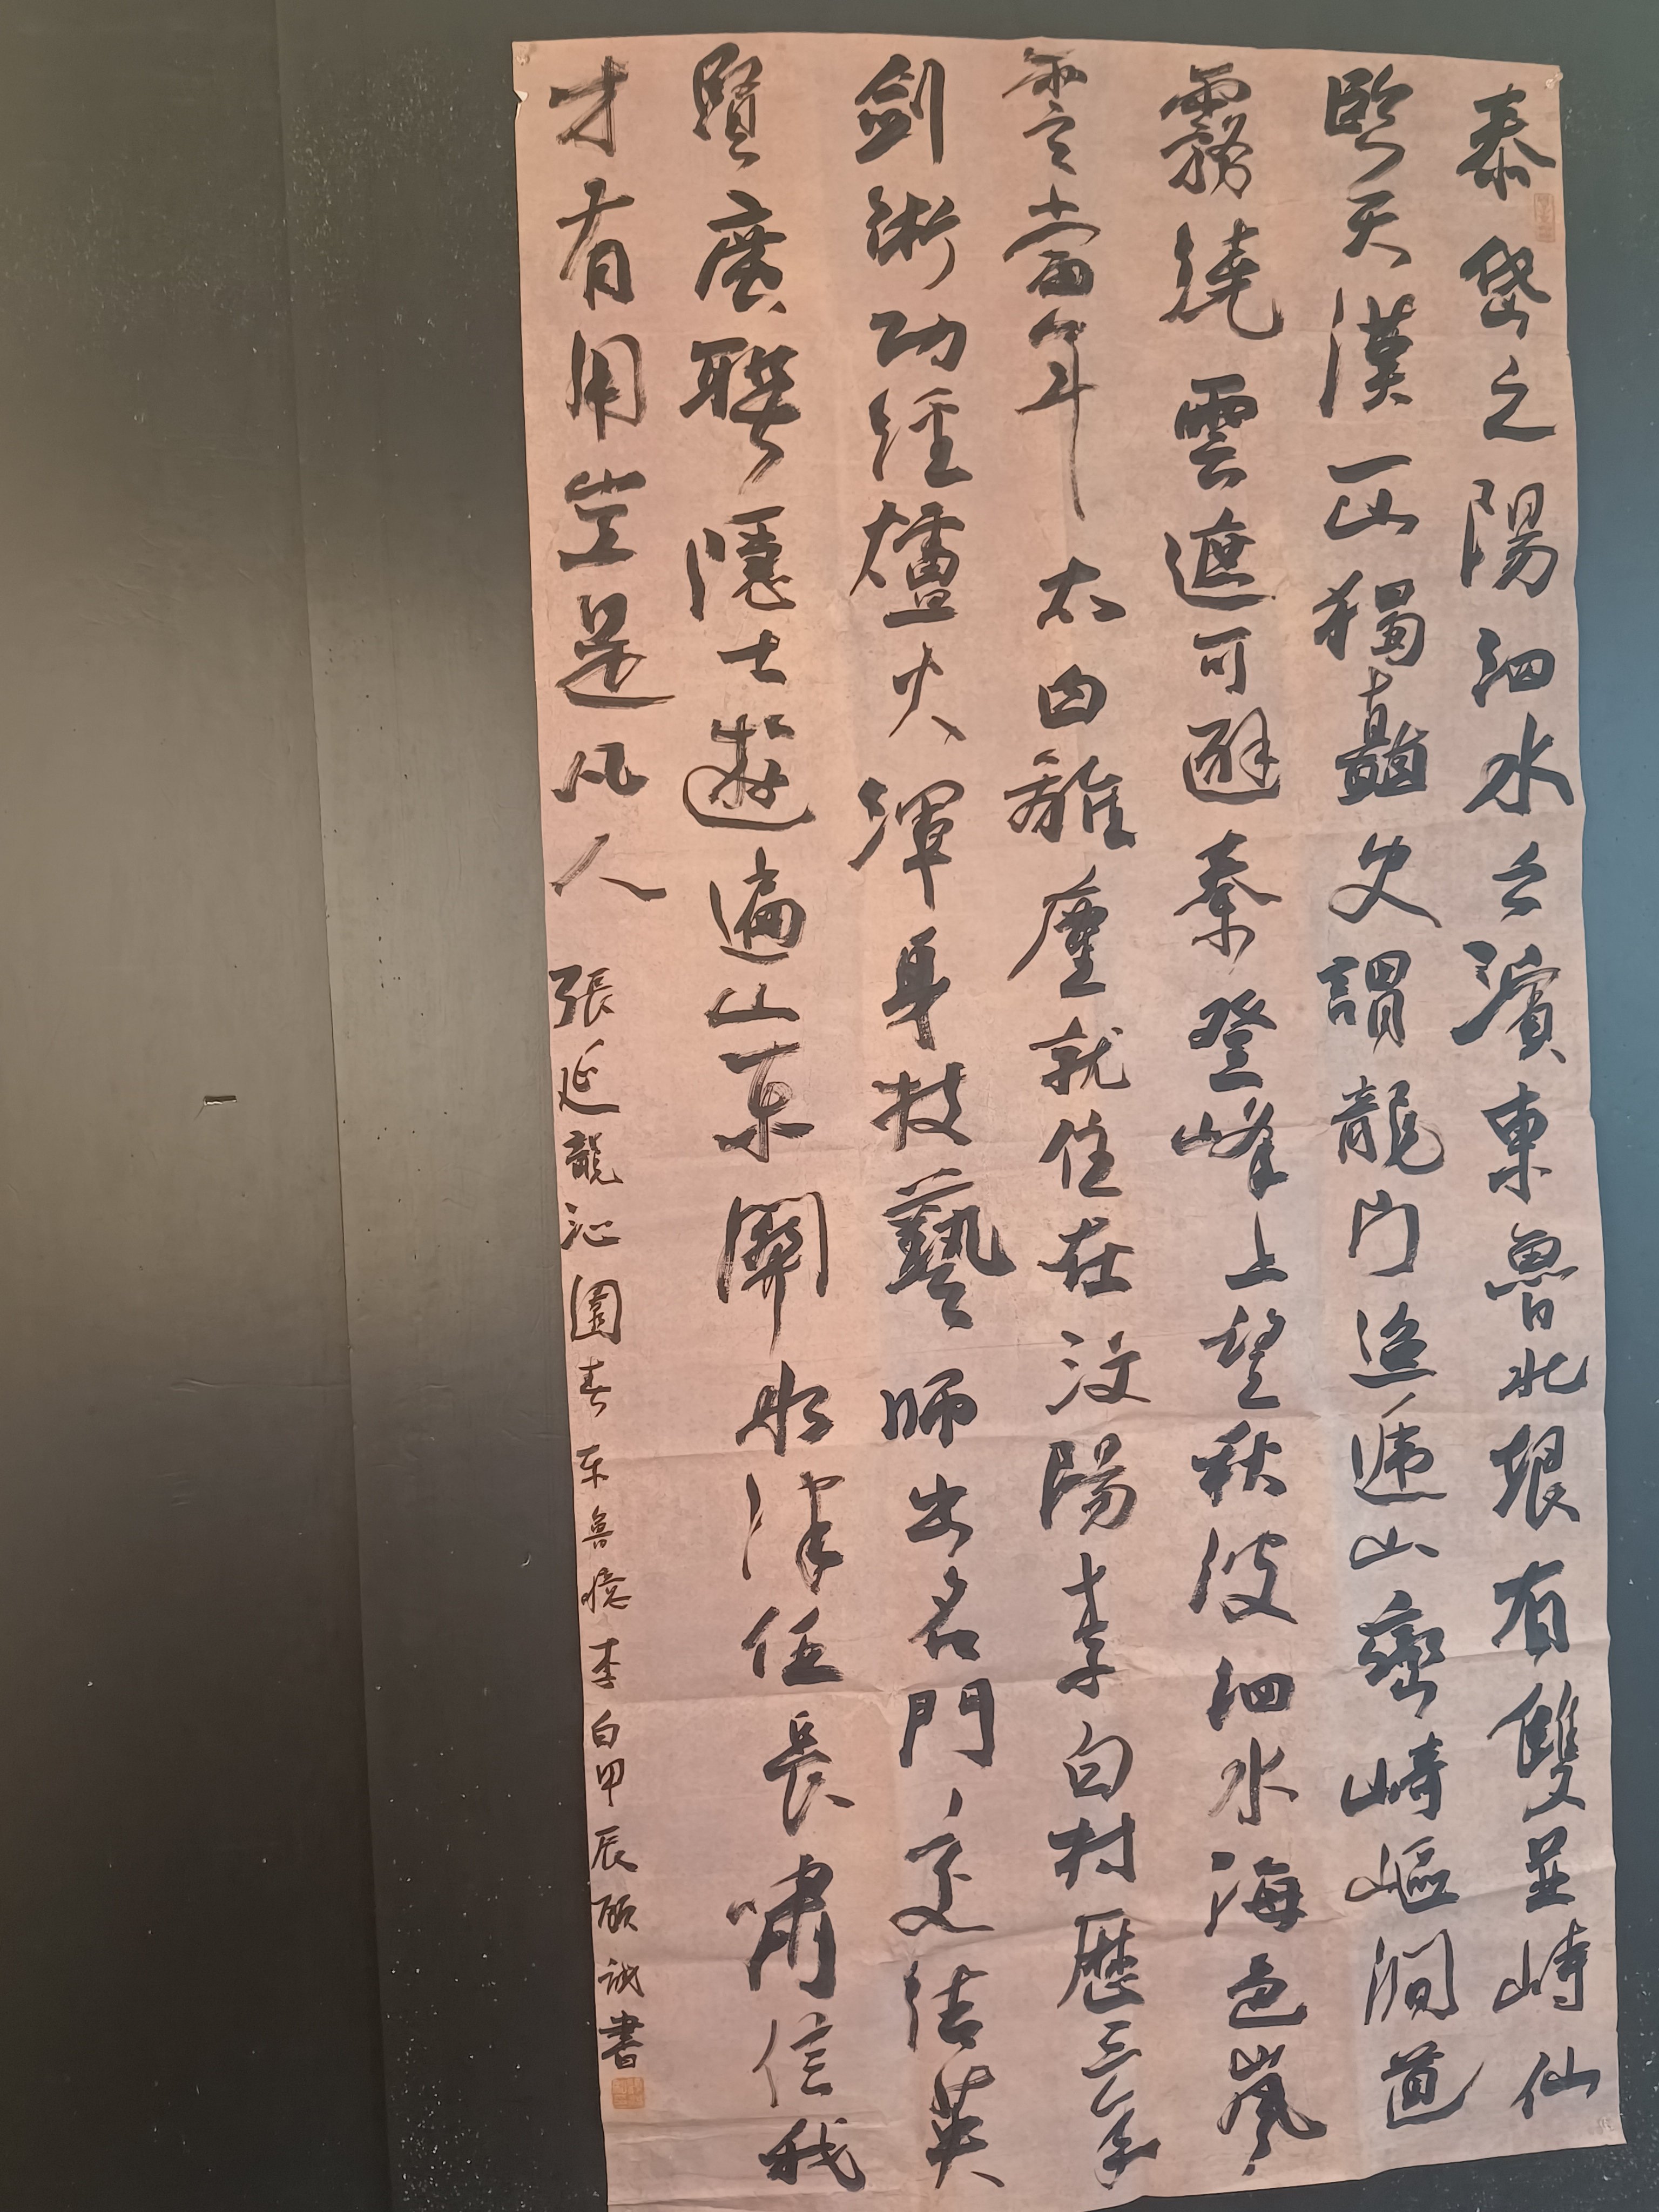 泰岱之陽泗水之濱東魯北垠有雙並峙仙
臨天漢一山獨矗史謂龍門迢遞山巒崎嶇澗道
霧繞雲遮可避秦登峰上望秋波泗水海色嵐
雲當年太白離塵就住在汶陽李白村歷三年
劍術功經爐火渾身技藝師出名門交结英
賢廣聯隱士遊遍山东關水津任長嘯信我
才有用豈是凡人
張延龍沁園春东魯憶李白甲辰碩誠書